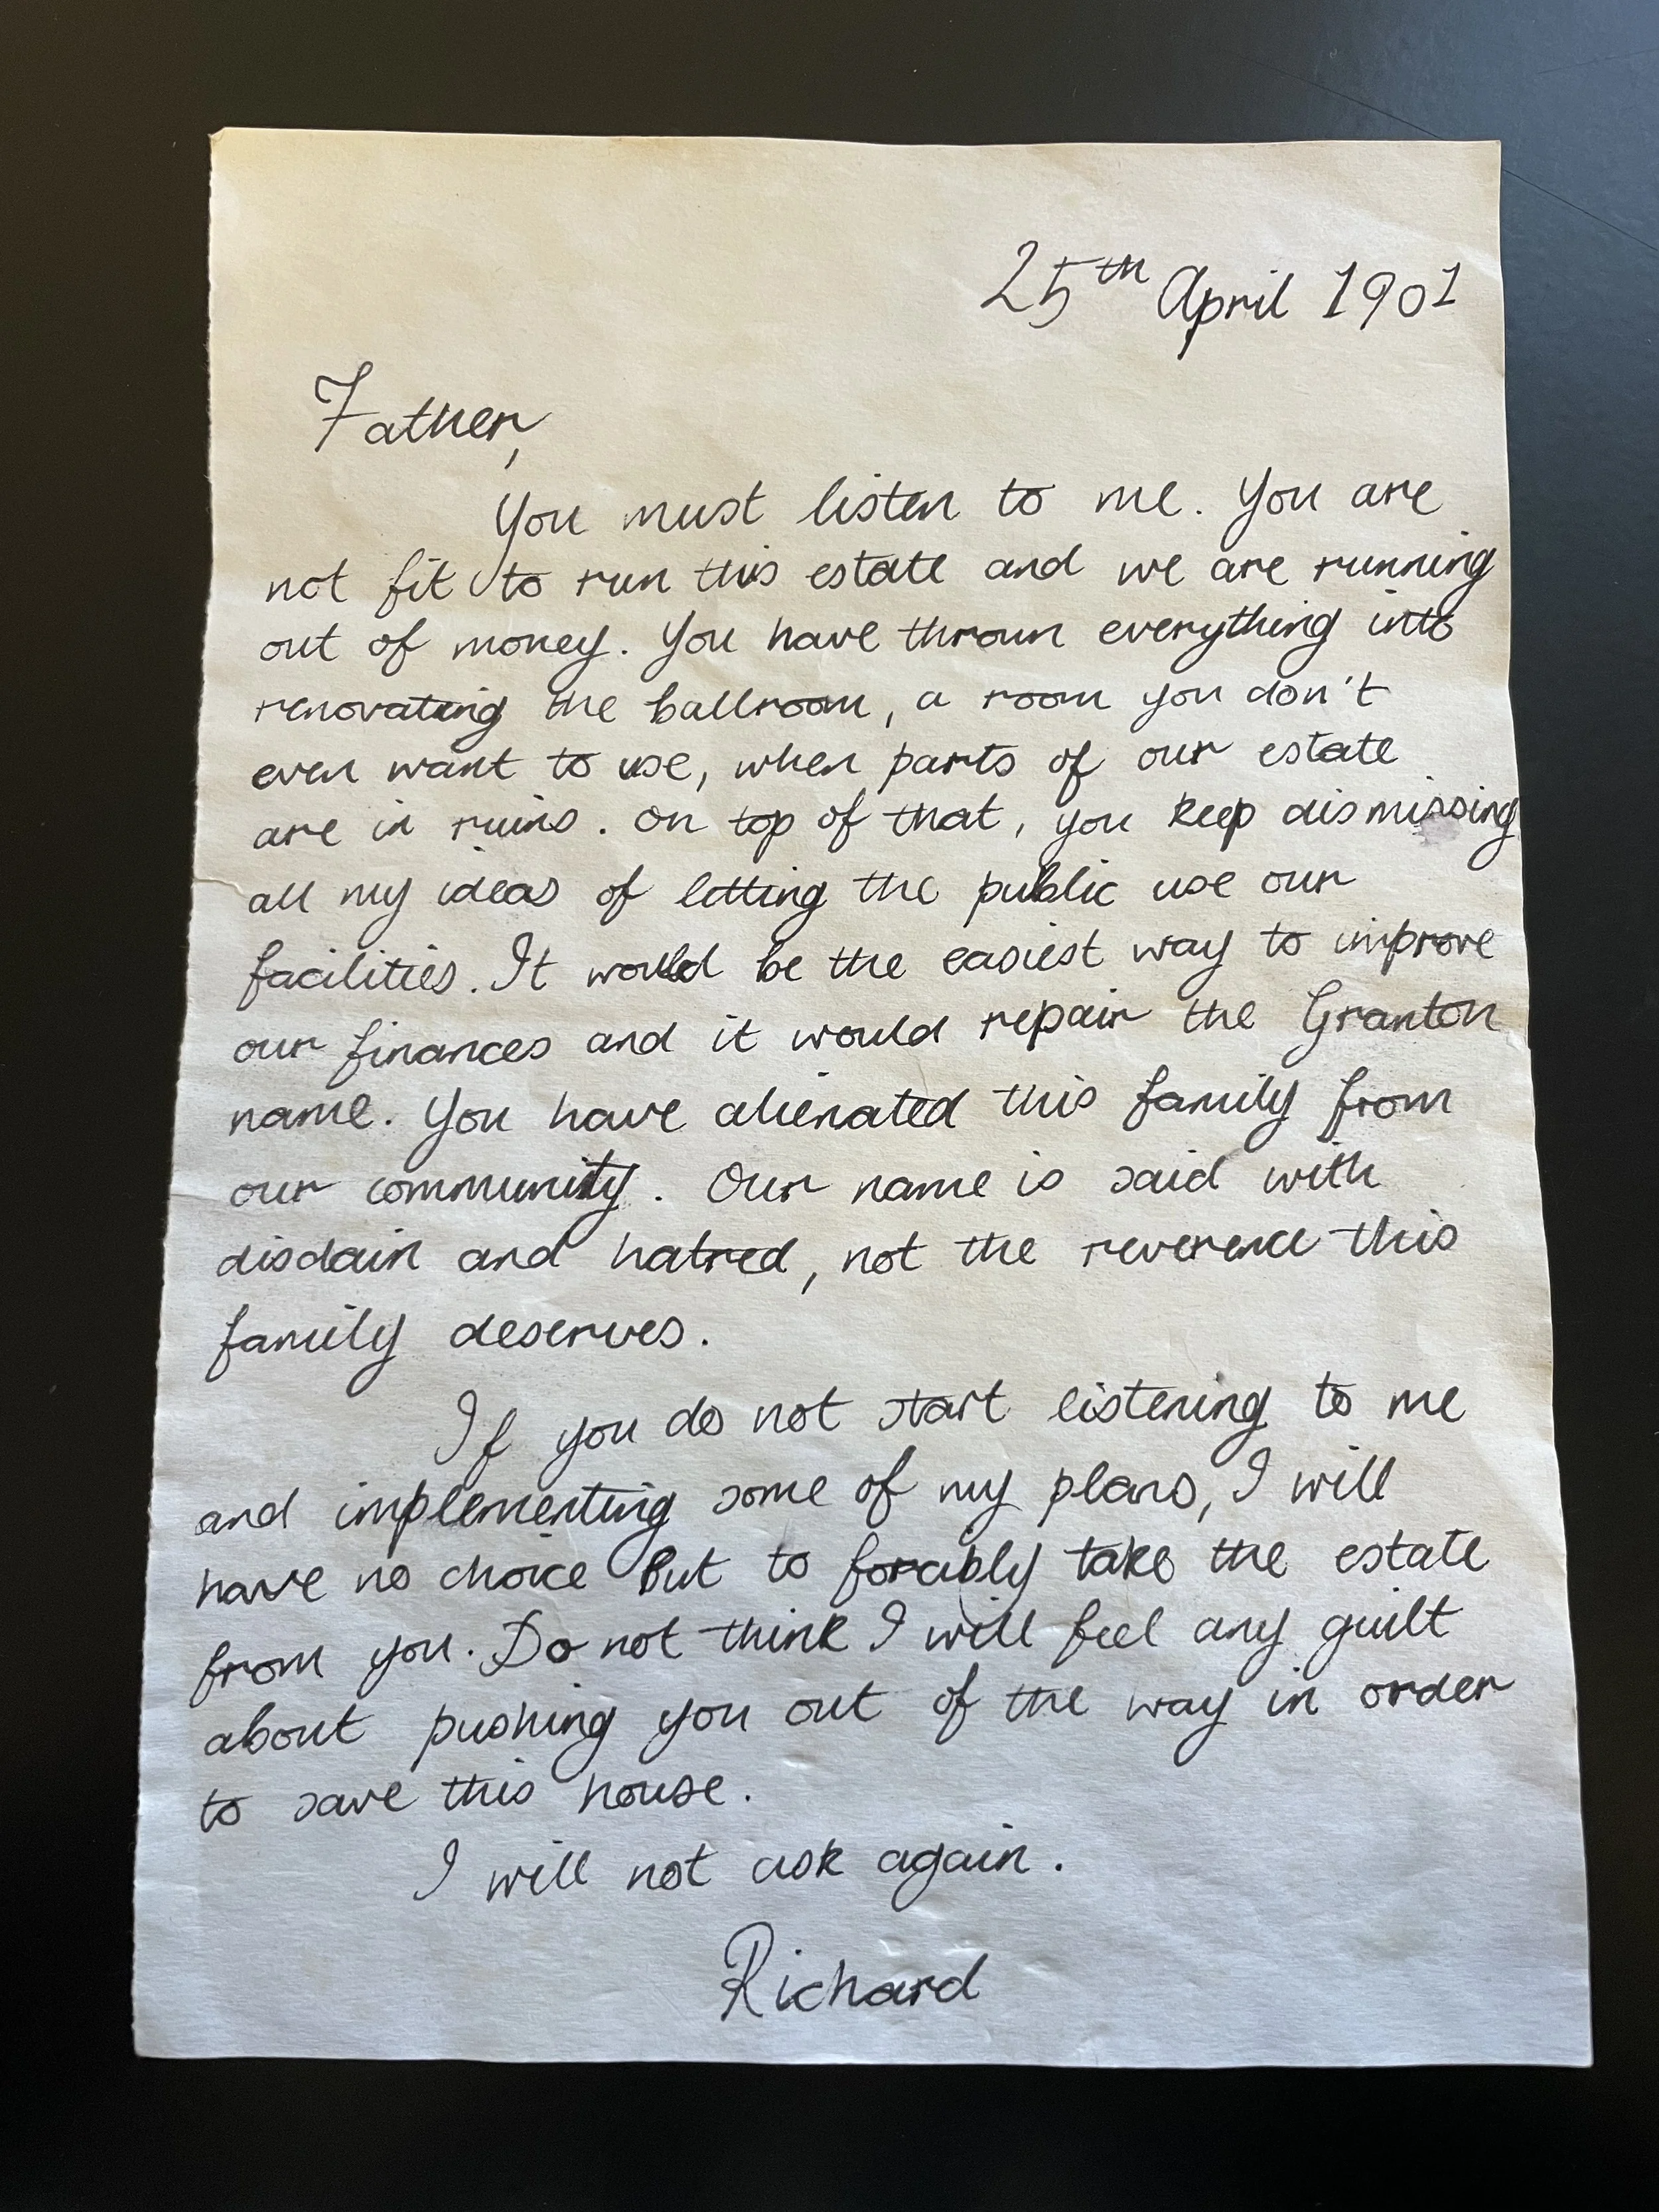 25th April 1901
Father,
You must listen to me. You are
not fit to run this estate and we are running
out of money. You have thrown everything into
renovating the ballroom, a room you don't
even want to use, when parts of our estate
are in ruins. On top of that, you keep dismissing
all my ideas of letting the public use our
facilities. It would be the easiest way to improve
our finances and it would repair the Granton
name. You have alienated this family from
our community. Our name is said with
disdain and hatred, not the reverence this
family deserves.
If you do not start listening to me
and implementing some of my plans, I will
have no choice but to forcibly take the estate
from you. Do not think I will feel any guilt
about pushing you out of the way in order
to save this house.
I will not ask again.
Richard